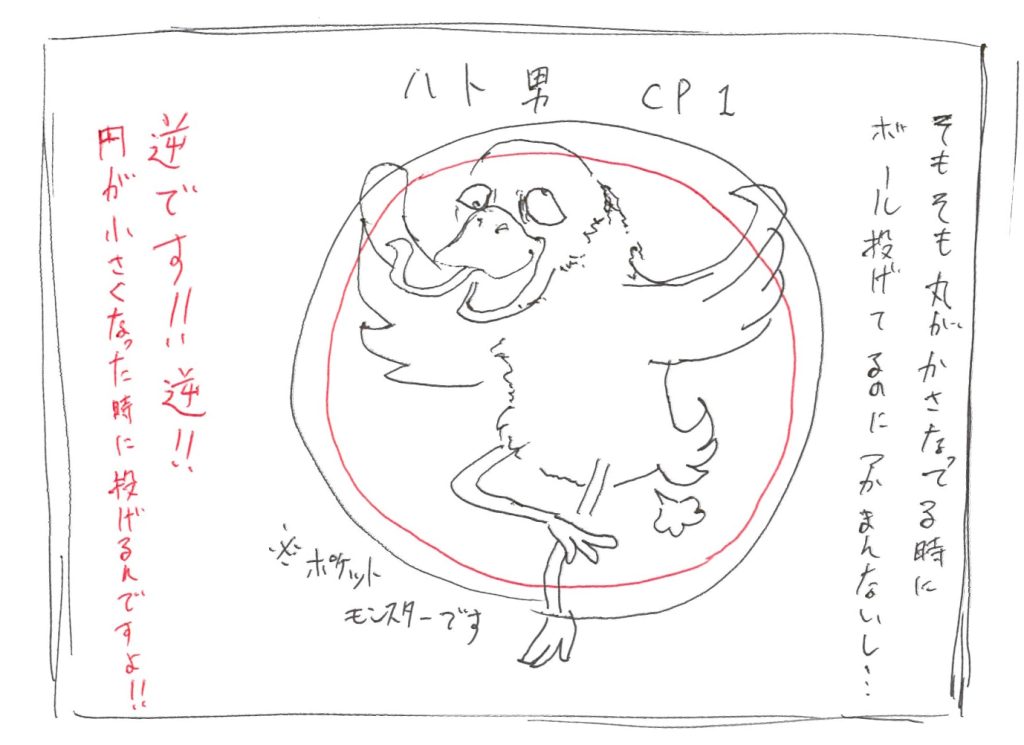 ハト男 CP1
そもそも丸がかさなってる時に
ボール投げてるのにつかまんないし…
逆です!! 逆!!
円が小さくなった時に投げるんですよ!!
※ポケット
モンスターです